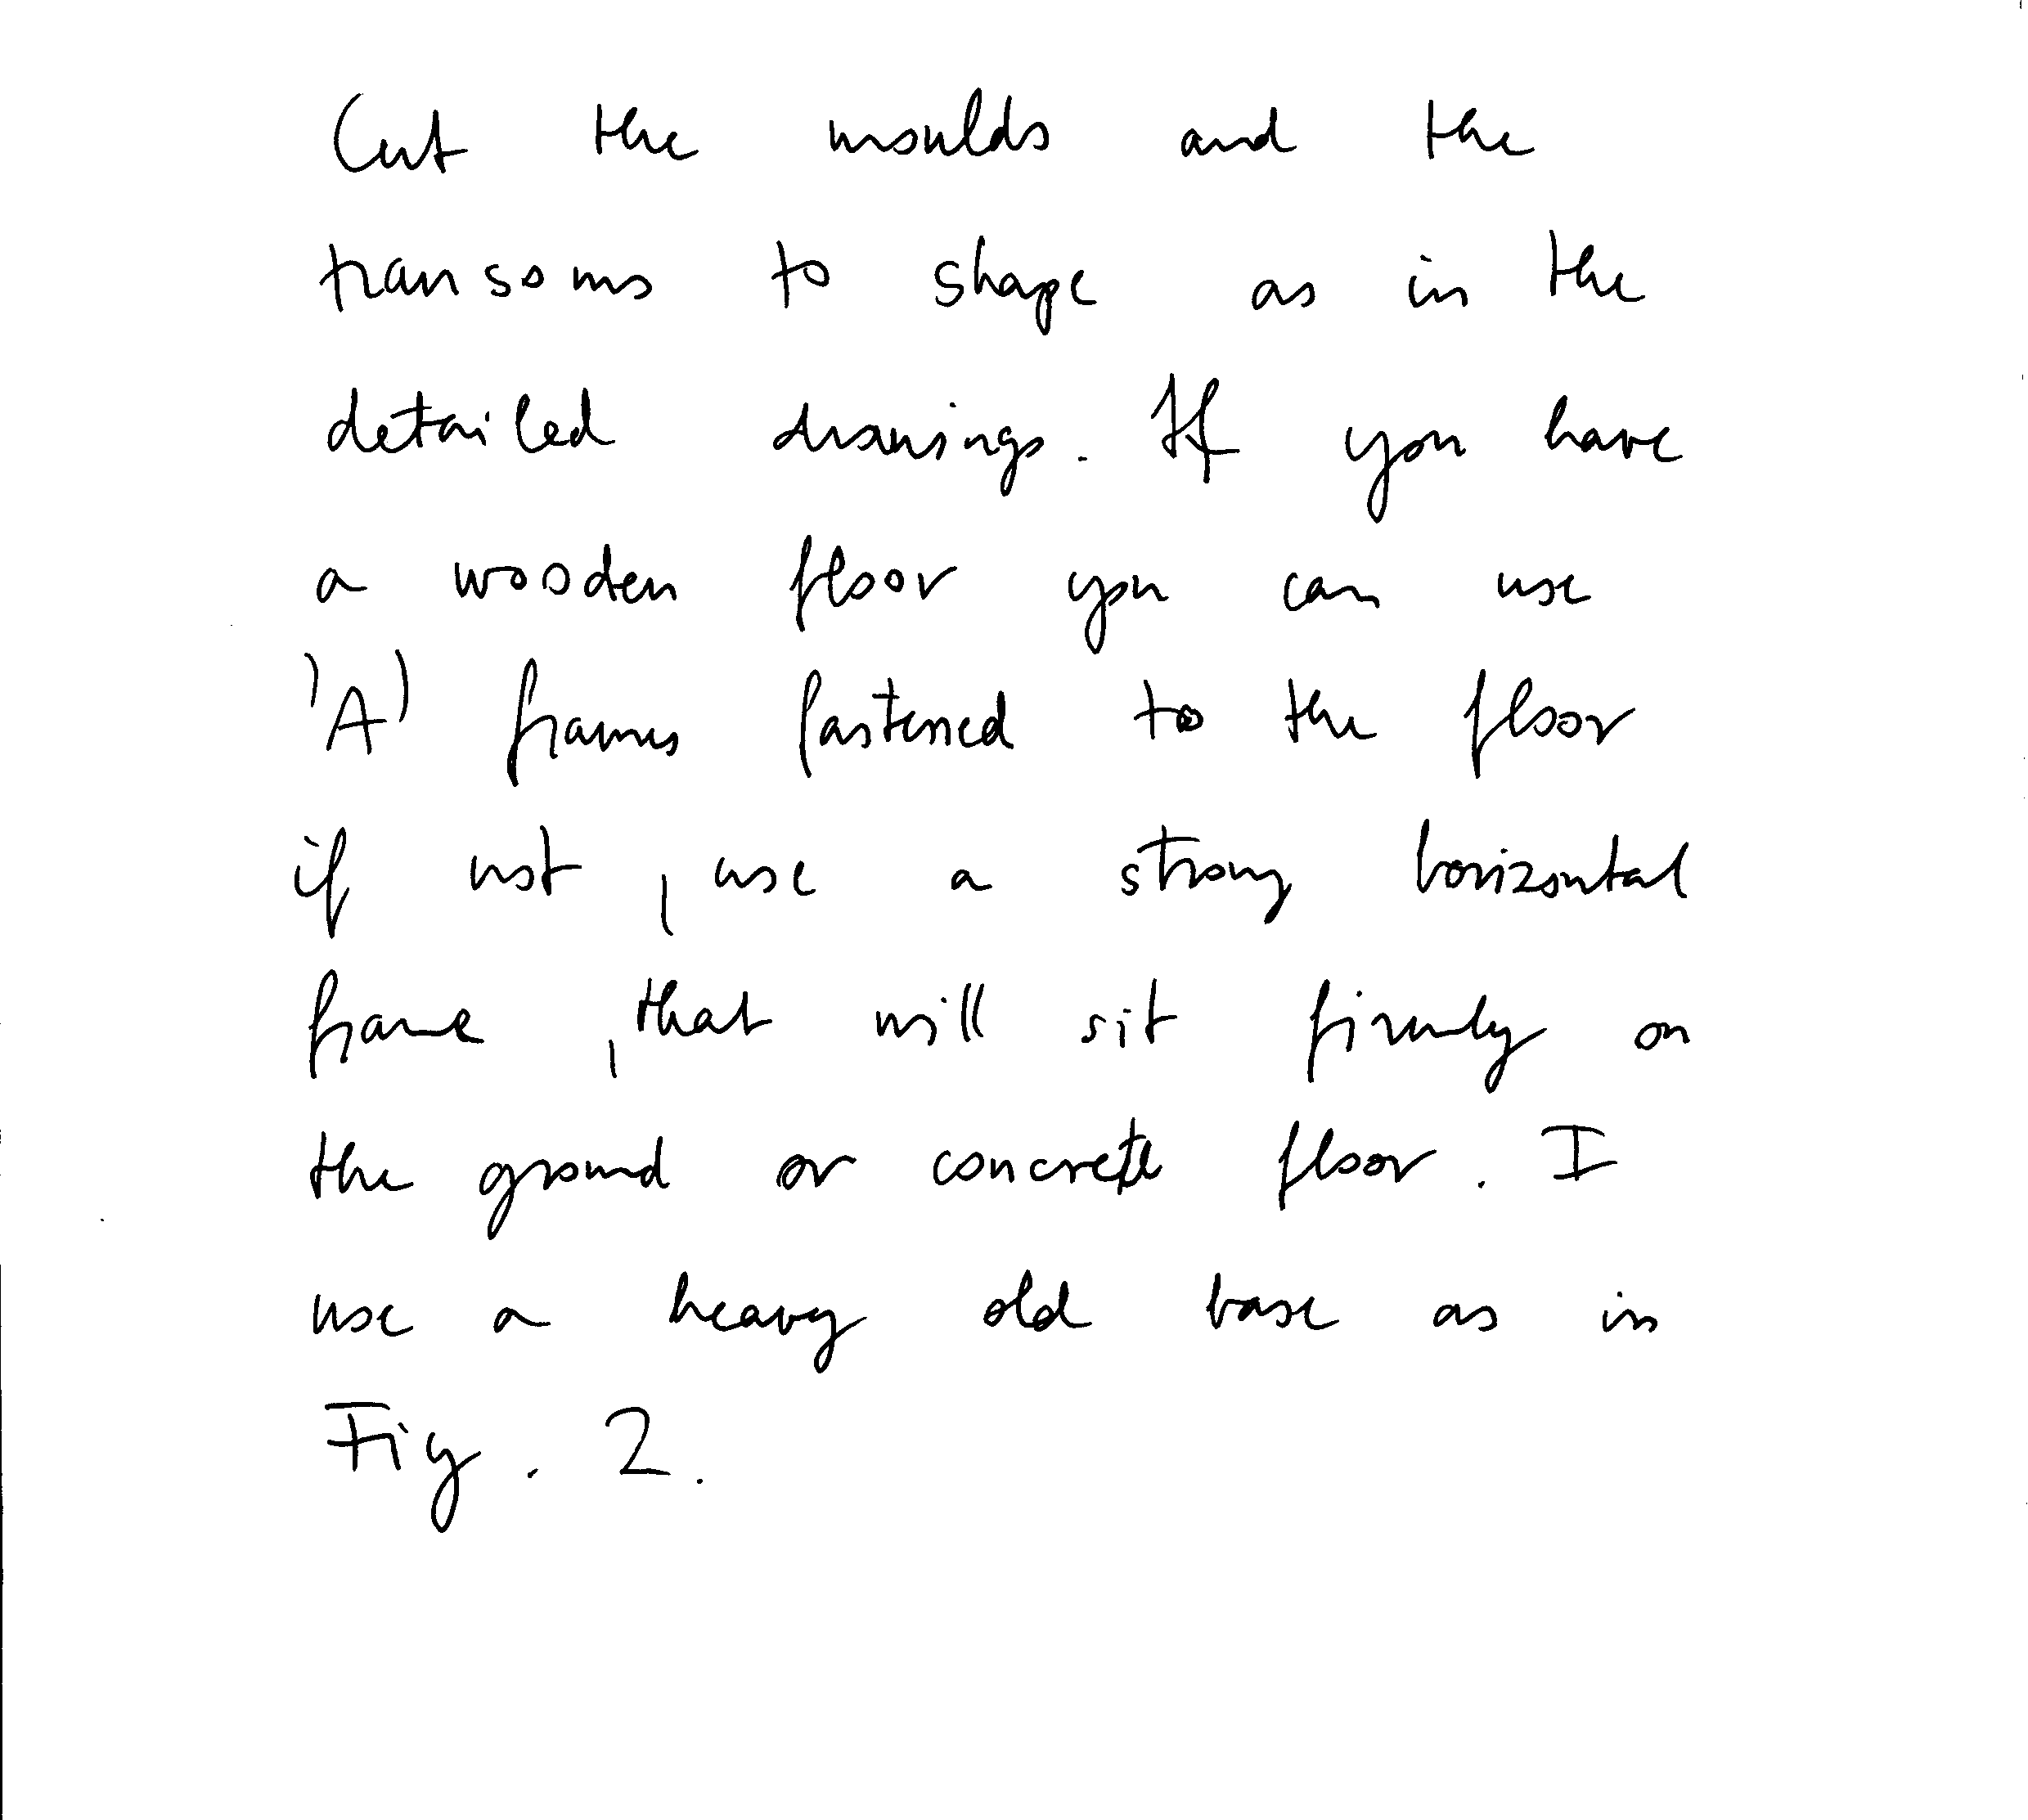 Cut the moulds and the
transoms to shape as in the
detailed drawings. If you have
a wooden floor you can use
'A' frames fastened to the floor
if not, use a strong horizontal
frame, that will sit firmly on
the ground or concrete floor. I
use a heavy old base as in
Fig. 2.